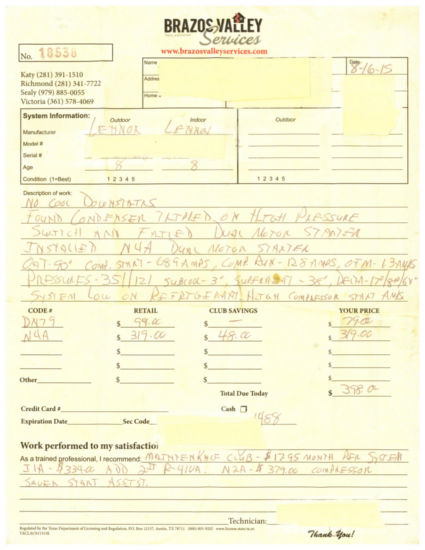 BRAZOS VALLEY
Services
www.brazosvalleyservices.com
No. 18538
Name
Date 8-16-15
Address
Home
Katy (281) 391-1510
Richmond (281) 341-7722
Sealy (979) 885-0055
Victoria (361) 578-4069
System Information: Outdoor Indoor Outdoor
Manufacturer LENNOX LENNOX
Model #
Serial #
Age 8 8
Condition (1=Best) 1 2 3 4 5 1 2 3 4 5
Description of work:
NO COOL DOWNSTAIRS
FOUND CONDENSER TRIPPED ON HIGH PRESSURE
SWITCH AND FAILED DUAL MOTOR STARTER
INSTALLED N4A DUAL MOTOR STARTER
OAT-90° COMP. START - 48.9 AMPS, COMP RUN - 12.8 AMPS, OFM - 1.3 AMPS
PRESSURES - 351/121 SUBCOOL - 3°, SUPERHEAT - 38°, DELTA-17°
SYSTEM LOW ON REFRIGERANT, HIGH COMPRESSOR START AMPS
CODE # RETAIL CLUB SAVINGS YOUR PRICE
DN79 $ 79.00 $ — $ 79.00
N4A $ 319.00 $ $ 319.00
$ $ $
$ $ $
Other $ $ $
Total Due Today $ 398.00
Credit Card # Cash
Expiration Date Sec Code 1458
Work performed to my satisfaction
As a trained professional, I recommend: MAINTENANCE CLUB - $17.95 MONTH PER SYSTEM
J1A - $334.00 ADD 2LB R-410A. N2A - $379.00 COMPRESSOR
SAVER START ASSIST.
Technician:
Regulated by the Texas Department of Licensing and Regulation, P.O. Box 12157, Austin, TX 78711
Thank You!